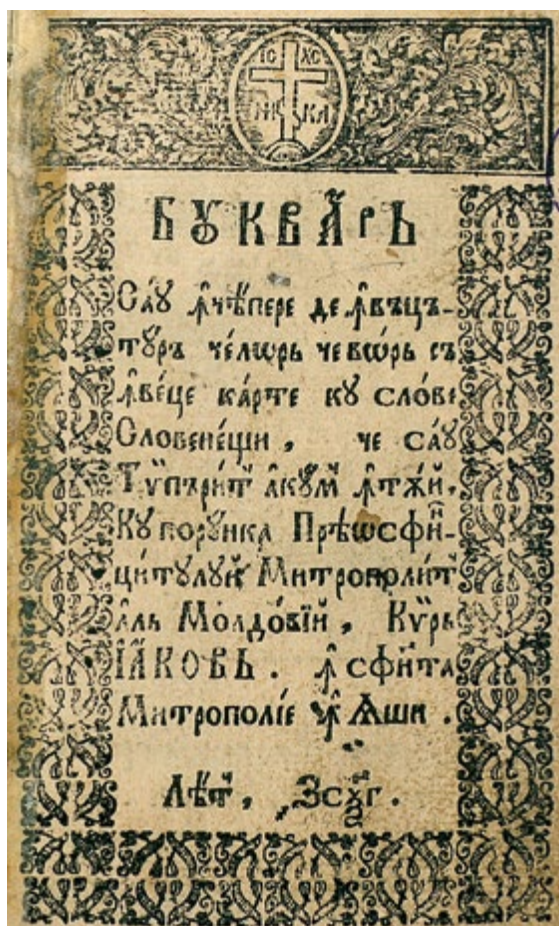 ІС ХС
НИ КА
БꙊКВА́РЬ
Са́ꙋ ꙟ҆чѣ́пере де ꙟ҆въцъ-
тꙋ́ръ че́лѡрь че во́рь съ
ꙟ҆ве́це ка́рте кꙋ сло́ве
Словене́щи , че са́ꙋ
Тѷпъри́т акꙋ́м ꙟ҆тѫ́й .
Кꙋ порꙋ́нка Прѣѡсфин-
ци́тꙋлꙋй Митрополи́т
а́ль Молдо́вїй , Кѵ́рь
ІА́КОВЬ . ꙟ҆ сфи́нта
Митропо́лїе ꙟ҆ Ꙗ҆ши .
Лѣт ,